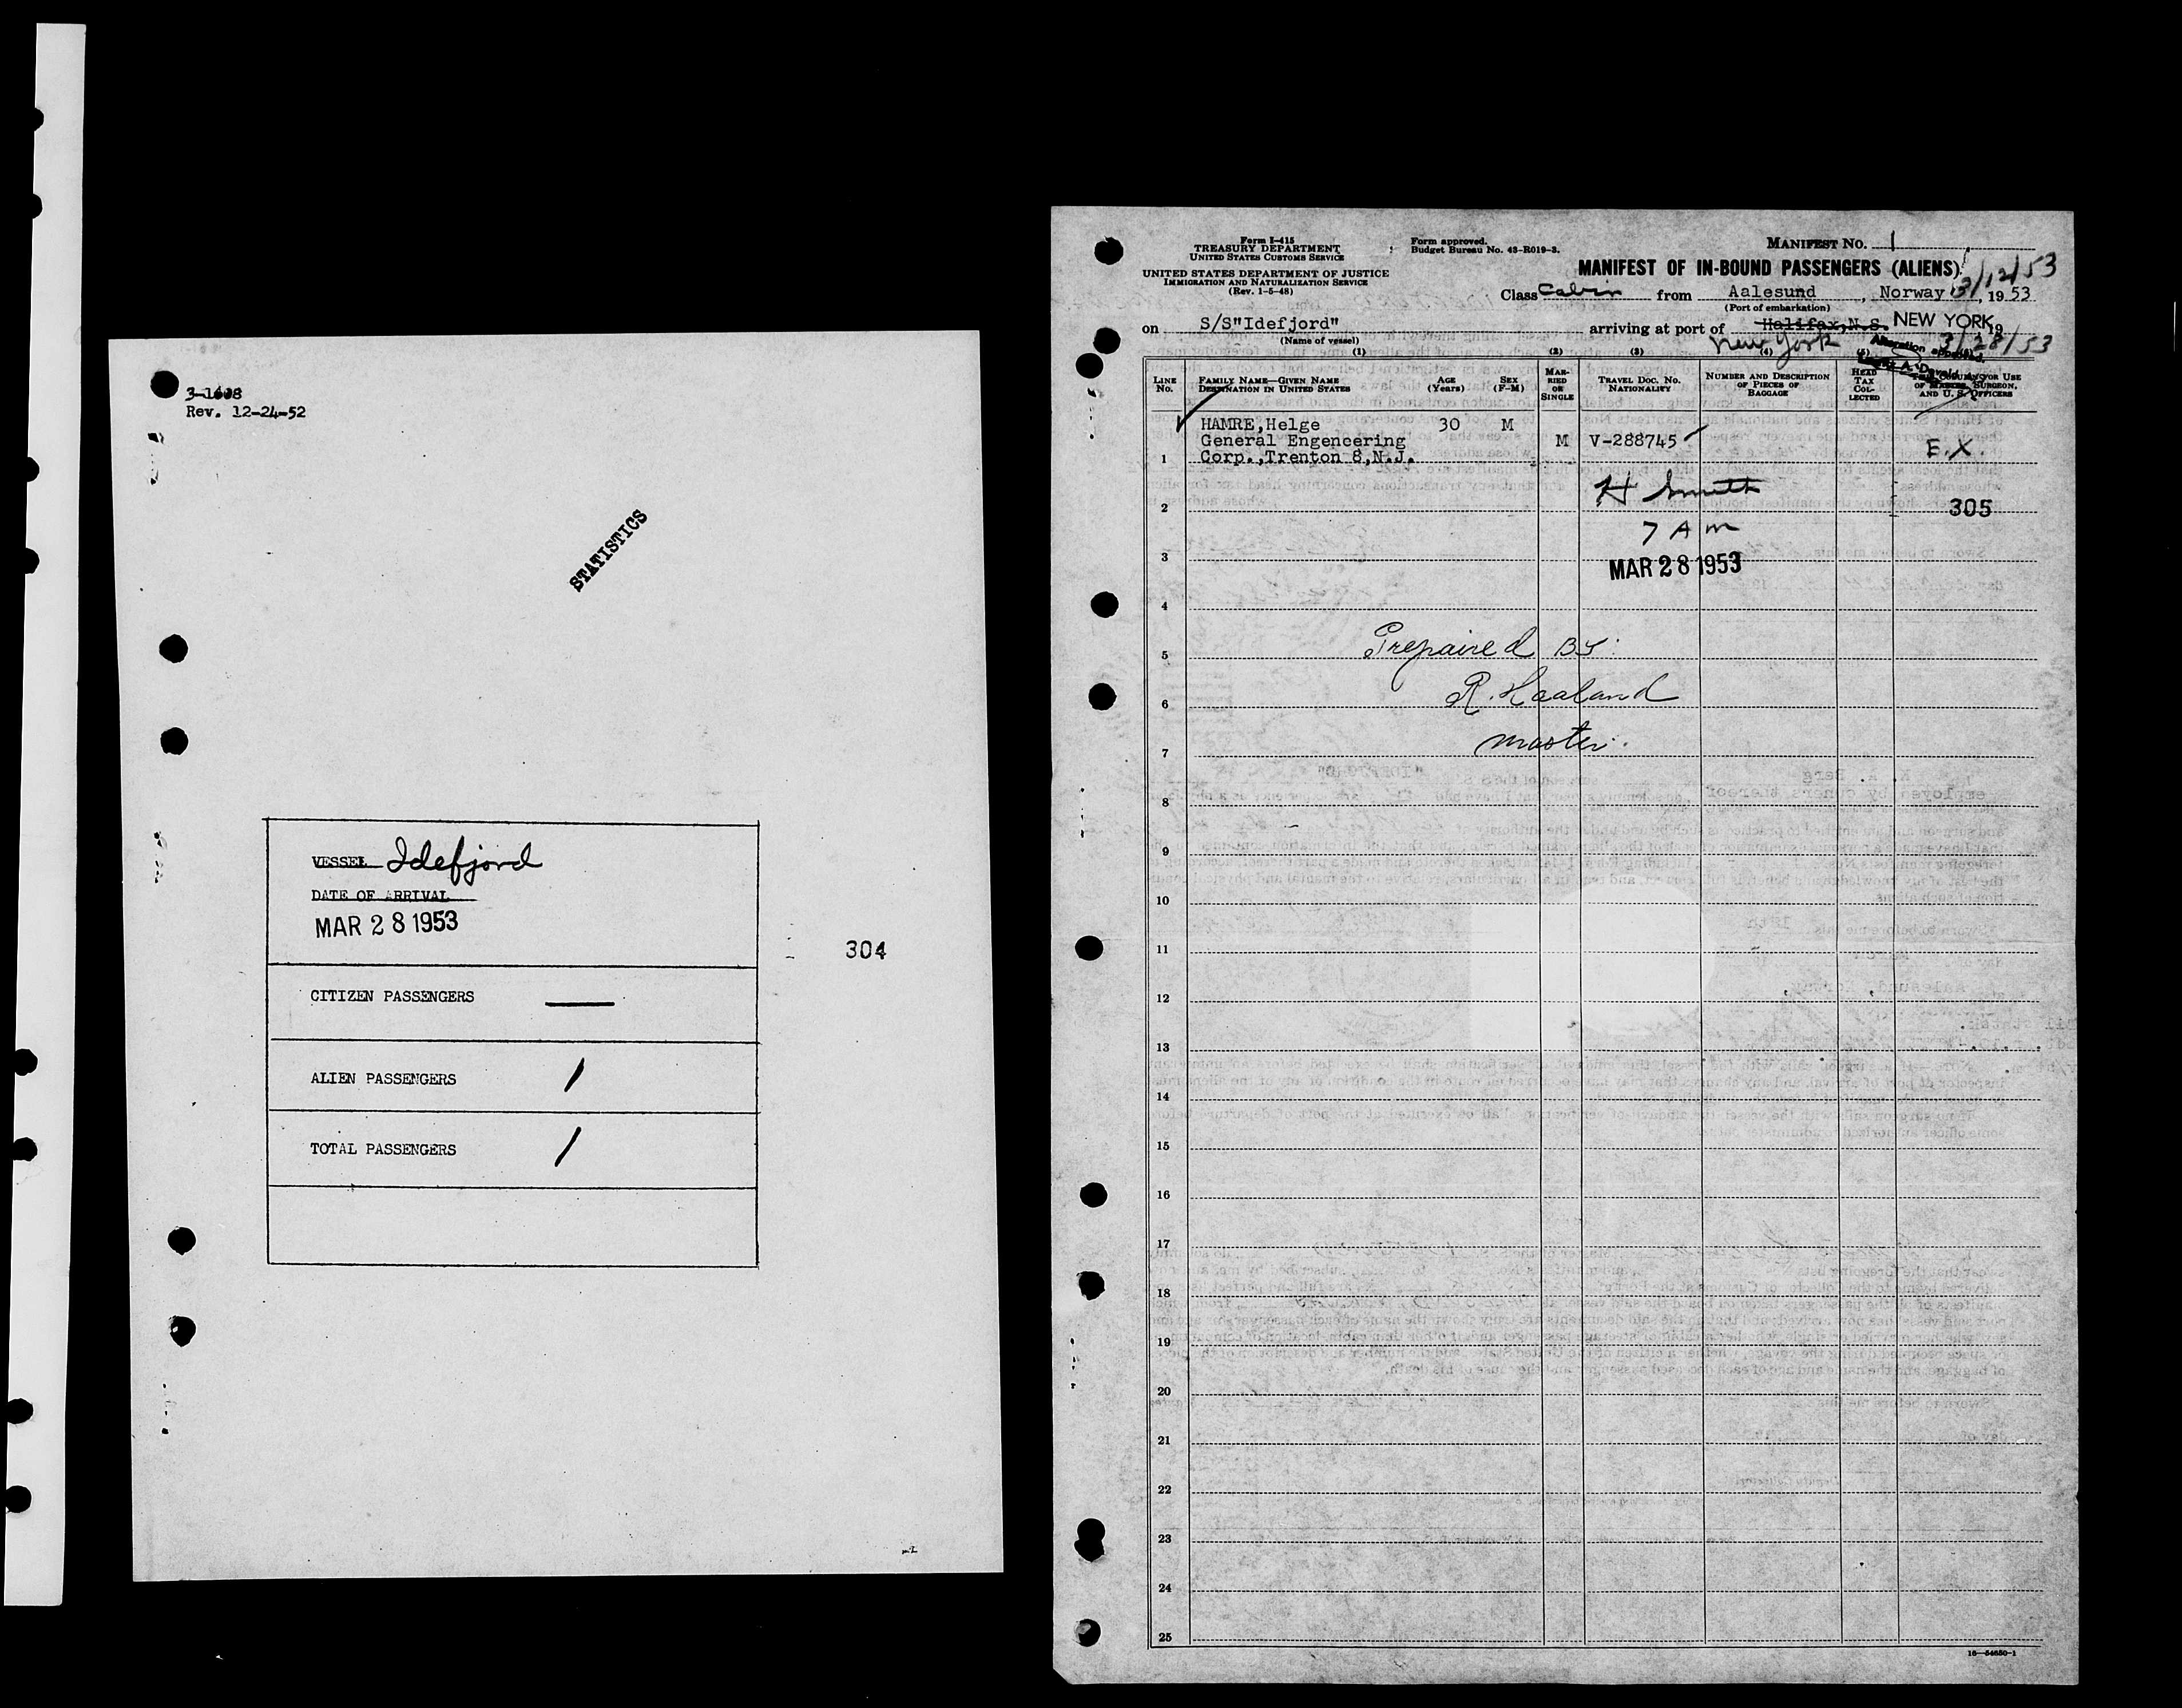 3-1608
Rev. 12-24-52
STATISTICS
VESSEL Idefjord
DATE OF ARRIVAL
MAR 28 1953
304
CITIZEN PASSENGERS —
ALIEN PASSENGERS 1
TOTAL PASSENGERS 1
Form I-415
TREASURY DEPARTMENT
UNITED STATES CUSTOMS SERVICE
UNITED STATES DEPARTMENT OF JUSTICE
IMMIGRATION AND NATURALIZATION SERVICE
(Rev. 1-5-48)
Form approved.
Budget Bureau No. 43-R019-3.
MANIFEST NO. 1
MANIFEST OF IN-BOUND PASSENGERS (ALIENS)
3/12/53
Class Cabin from Aalesund, Norway, 1953
(Port of embarkation)
on S/S"Idefjord" arriving at port of Halifax,N.S. NEW YORK, 19
(Name of vessel)
New York 3/28/53
Alteration approved.
(1) (2) (3) (4) (5) (6)
LINE NO.
FAMILY NAME—GIVEN NAME
DESTINATION IN UNITED STATES
AGE (Years)
SEX (F-M)
MARRIED OR SINGLE
TRAVEL DOC. NO. NATIONALITY
NUMBER AND DESCRIPTION OF PIECES OF BAGGAGE
HEAD TAX COLLECTED
THIS COLUMN FOR USE OF MASTER, SURGEON, AND U. S. OFFICERS
HAMRE,Helge 30 M
General Engencering M V-288745 E.X.
1 Corp.,Trenton 8,N.J.
H Smith
2 305
7 AM
3 MAR 28 1953
4
5 Prepaired By:
6 R. Haaland
7 master.
8
9
10
11
12
13
14
15
16
17
18
19
20
21
22
23
24
25
16—54650-1